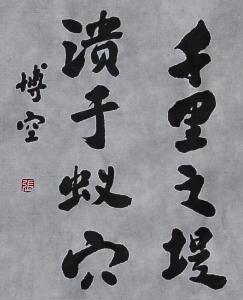 千里之堤
溃于蚁穴
博空